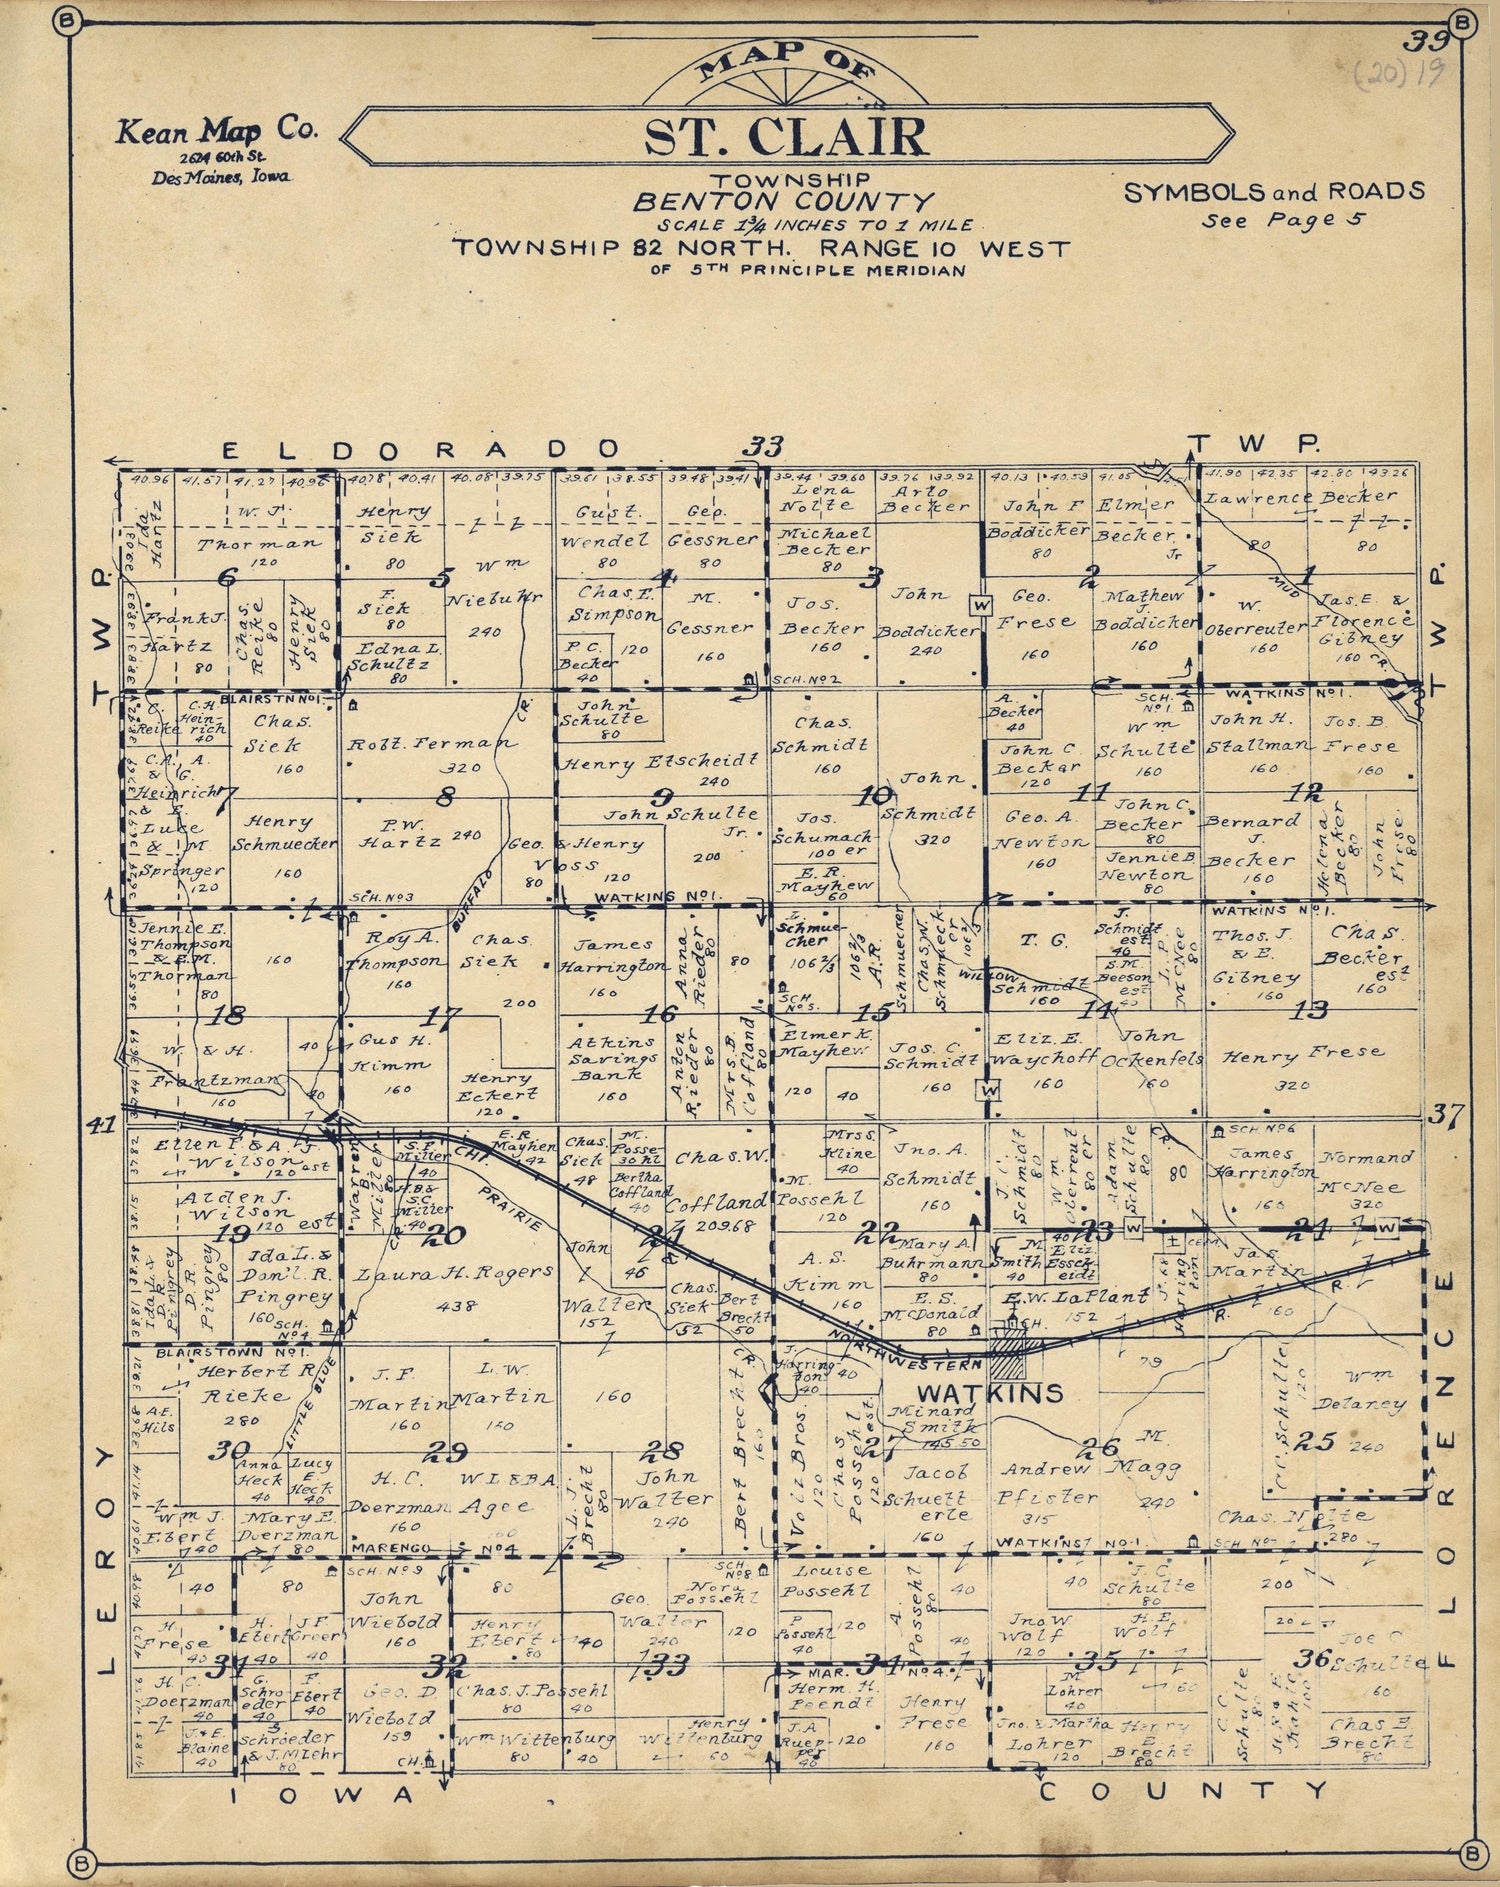 B
B
39
(20) 19
MAP OF
ST. CLAIR
Kean Map Co.
2624 60th St.
Des Moines, Iowa
TOWNSHIP
BENTON COUNTY
SCALE 1¾ INCHES TO 1 MILE
TOWNSHIP 82 NORTH. RANGE 10 WEST
OF 5TH PRINCIPLE MERIDIAN
SYMBOLS and ROADS
See Page 5
ELDORADO 33 TWP.
40.96 41.57 41.27 40.96 40.78 40.41 40.08 39.75 39.61 38.55 39.48 39.41 39.44 39.60 39.76 39.92 40.13 40.59 41.05 41.90 42.35 42.80 43.26
Ida Hartz
W. J. Thorman 120
Henry Siek 80
Wm Niebuhr 240
Gust. Wendel 80
Geo. Gessner 80
Lena Nolte
Michael Becker 80
Arto Becker
John F Boddicker 80
Elmer Becker Jr
Lawrence Becker
80 80
6 5 4 3 2 1
TWP.
TWP.
Frank J. Hartz 80
Chas. Reike 80
Henry Siek 80
F. Siek 80
Edna L. Schultz 80
Chas. E. Simpson 120
P C. Becker 40
M. Gessner 160
Jos. Becker 160
John Boddicker 240
W
Geo. Frese 160
Mathew J. Boddicker 160
W. Oberreuter 160
MUD CR.
Jas. E. & Florence Gibney 160
BLAIRSTN No 1.
SCH. No 2
SCH. No 1.
WATKINS No 1.
C. Reike
C. H. Heinrich 40
Chas. Siek 160
Robt. Ferman 320
CR.
John Schulte 80
Henry Etscheidt 240
Chas. Schmidt 160
John Schmidt 320
A. Becker 40
John C. Becker 120
Wm Schulte 160
John H. Stallman 160
Jos. B. Frese 160
C. A. & A. G. Heinrich
7 8 9 10 11 12
& E. Luse & M. Springer 120
Henry Schmuecker 160
P. W. Hartz 240
Geo. & Henry Voss
80 120
John Schulte Jr. 200
Jos. Schumacher 100
E. R. Mayhew 60
Geo. A. Newton 160
John C. Becker 80
Jennie B. Newton 80
Bernard J. Becker 160
Helena Becker 80
John Frese 80
SCH. No 3
BUFFALO
WATKINS No 1.
WATKINS No 1.
Jennie E. Thompson & E. M. Thorman 80
160
Roy A. Thompson 160
Chas. Siek 200
James Harrington 160
Anna Rieder 80
80
L. Schmuecher 106 2/3
A. R. Schmuecker 106 2/3
Chas. W. Schmuecker 106 2/3
SCH No 5.
WILLOW
T. G. Schmidt 160
J. Schmidt est 40
S. M. Beeson est
L. P. McNee 80
Thos. J. & E. Gibney 160
Chas. Becker est 160
18 17 16 15 14 13
W. & H. Frantzman 160
40
40
Gus H. Kimm 160
Henry Eckert 120
Atkins Savings Bank 160
Anton Rieder 80
Mrs. B. Coffland 80
Elmer K. Mayhew 120
40
Jos. C. Schmidt 160
W
Eliz. E. Waychoff 160
John Ockenfels 160
Henry Frese 320
41
37
Ellen F. & A. J. Wilson est 120
Alden J. Wilson est 120
Warren B. Miller 80
S. F. Miller 40
H. B. & S. C. Miller 40
CHI.
E. R. Mayhew 42
PRAIRIE
Chas. Siek 48
M. Possehl 30
Bertha Coffland 40
Chas. W. Coffland 209.68
Mrs S. Kline 40
M. Possehl 120
Jno. A. Schmidt 160
J. C. Schmidt 80
Wm Oberreuter 80
Adam Schulte 80
CR.
80
SCH No 6
James Harrington 160
Normand McNee 320
19 20 21 22 23 24
W
W
Ida L. & D. R. Pingrey
D. R. Pingrey 80
Ida L. & Don'l. R. Pingrey 160
SCH. No 4.
Laura H. Rogers 438
John Walter 152
46
Chas. Siek 52
Bert Brecht 50
A. S. Kimm 160
Mary A. Buhrmann 80
E. S. McDonald 80
M. Smith 40
Eliz. Essckeidt 40
CEM.
E. W. LaPlant 152
SCH.
Jas. Martin 160
R. R.
BLAIRSTOWN No 1.
NORTHWESTERN
WATKINS
LITTLE BLUE
CR.
Herbert R. Rieke 280
A. E. Hils
J. F. Martin 160
L. W. Martin 160
160
Bert Brecht 160
J. Harrington 40
40
Voitz Bros. 120
Chas Possehl est. 120
Minard Smith 145.50
79
C. C. Schulte 120
Wm Delaney 240
30 29 28 27 26 25
Anna Heck 40
Lucy E. Heck 40
H. C. Doerzman 160
W. I. & B A. Agee
L. J. Brecht 80
John Walter 240
Jacob Schuetterle 160
Andrew Pfister 315
M. Magg 240
Wm J. Ebert 140
Mary E. Doerzman 80
Chas. Nolte 280
MARENGO No 4
WATKINS No 1.
SCH No 9
SCH No 8
40
80
John Wiebold 160
80
Geo. Walter 240
Nora Possehl
120
Louise Possehl 120
P Possehl 40
A. Possehl 80
40
40
40
J. C. Schulte 80
200
20
H. Frese 40
H. Ebert 40
J F Greer 40
Henry Ebert 80
140
Jno W. Wolf 120
H. E. Wolf
Joe C Schulte 60
31 32 33 34 35 36
MAR. No 4.
H. C. Doerzman 40
G. Schroeder 40
F. Ebert 40
Geo. D. Wiebold 159
Chas. J. Possehl 80 40
Herm. H. Peendt
120
Henry Frese 160
M Lohrer 40
160
C. C. Schulte 80
J & E. Blaine 40
Schroeder & J. M Lehr 80
CH.
Wm Wittenburg 80 40
Henry Wittenburg 60
J. A Ruepper 40
Jno. & Martha Lohrer 120
Henry E Brecht 80
Chas E Brecht 80
LEROY
FLORENCE
IOWA COUNTY
B
B